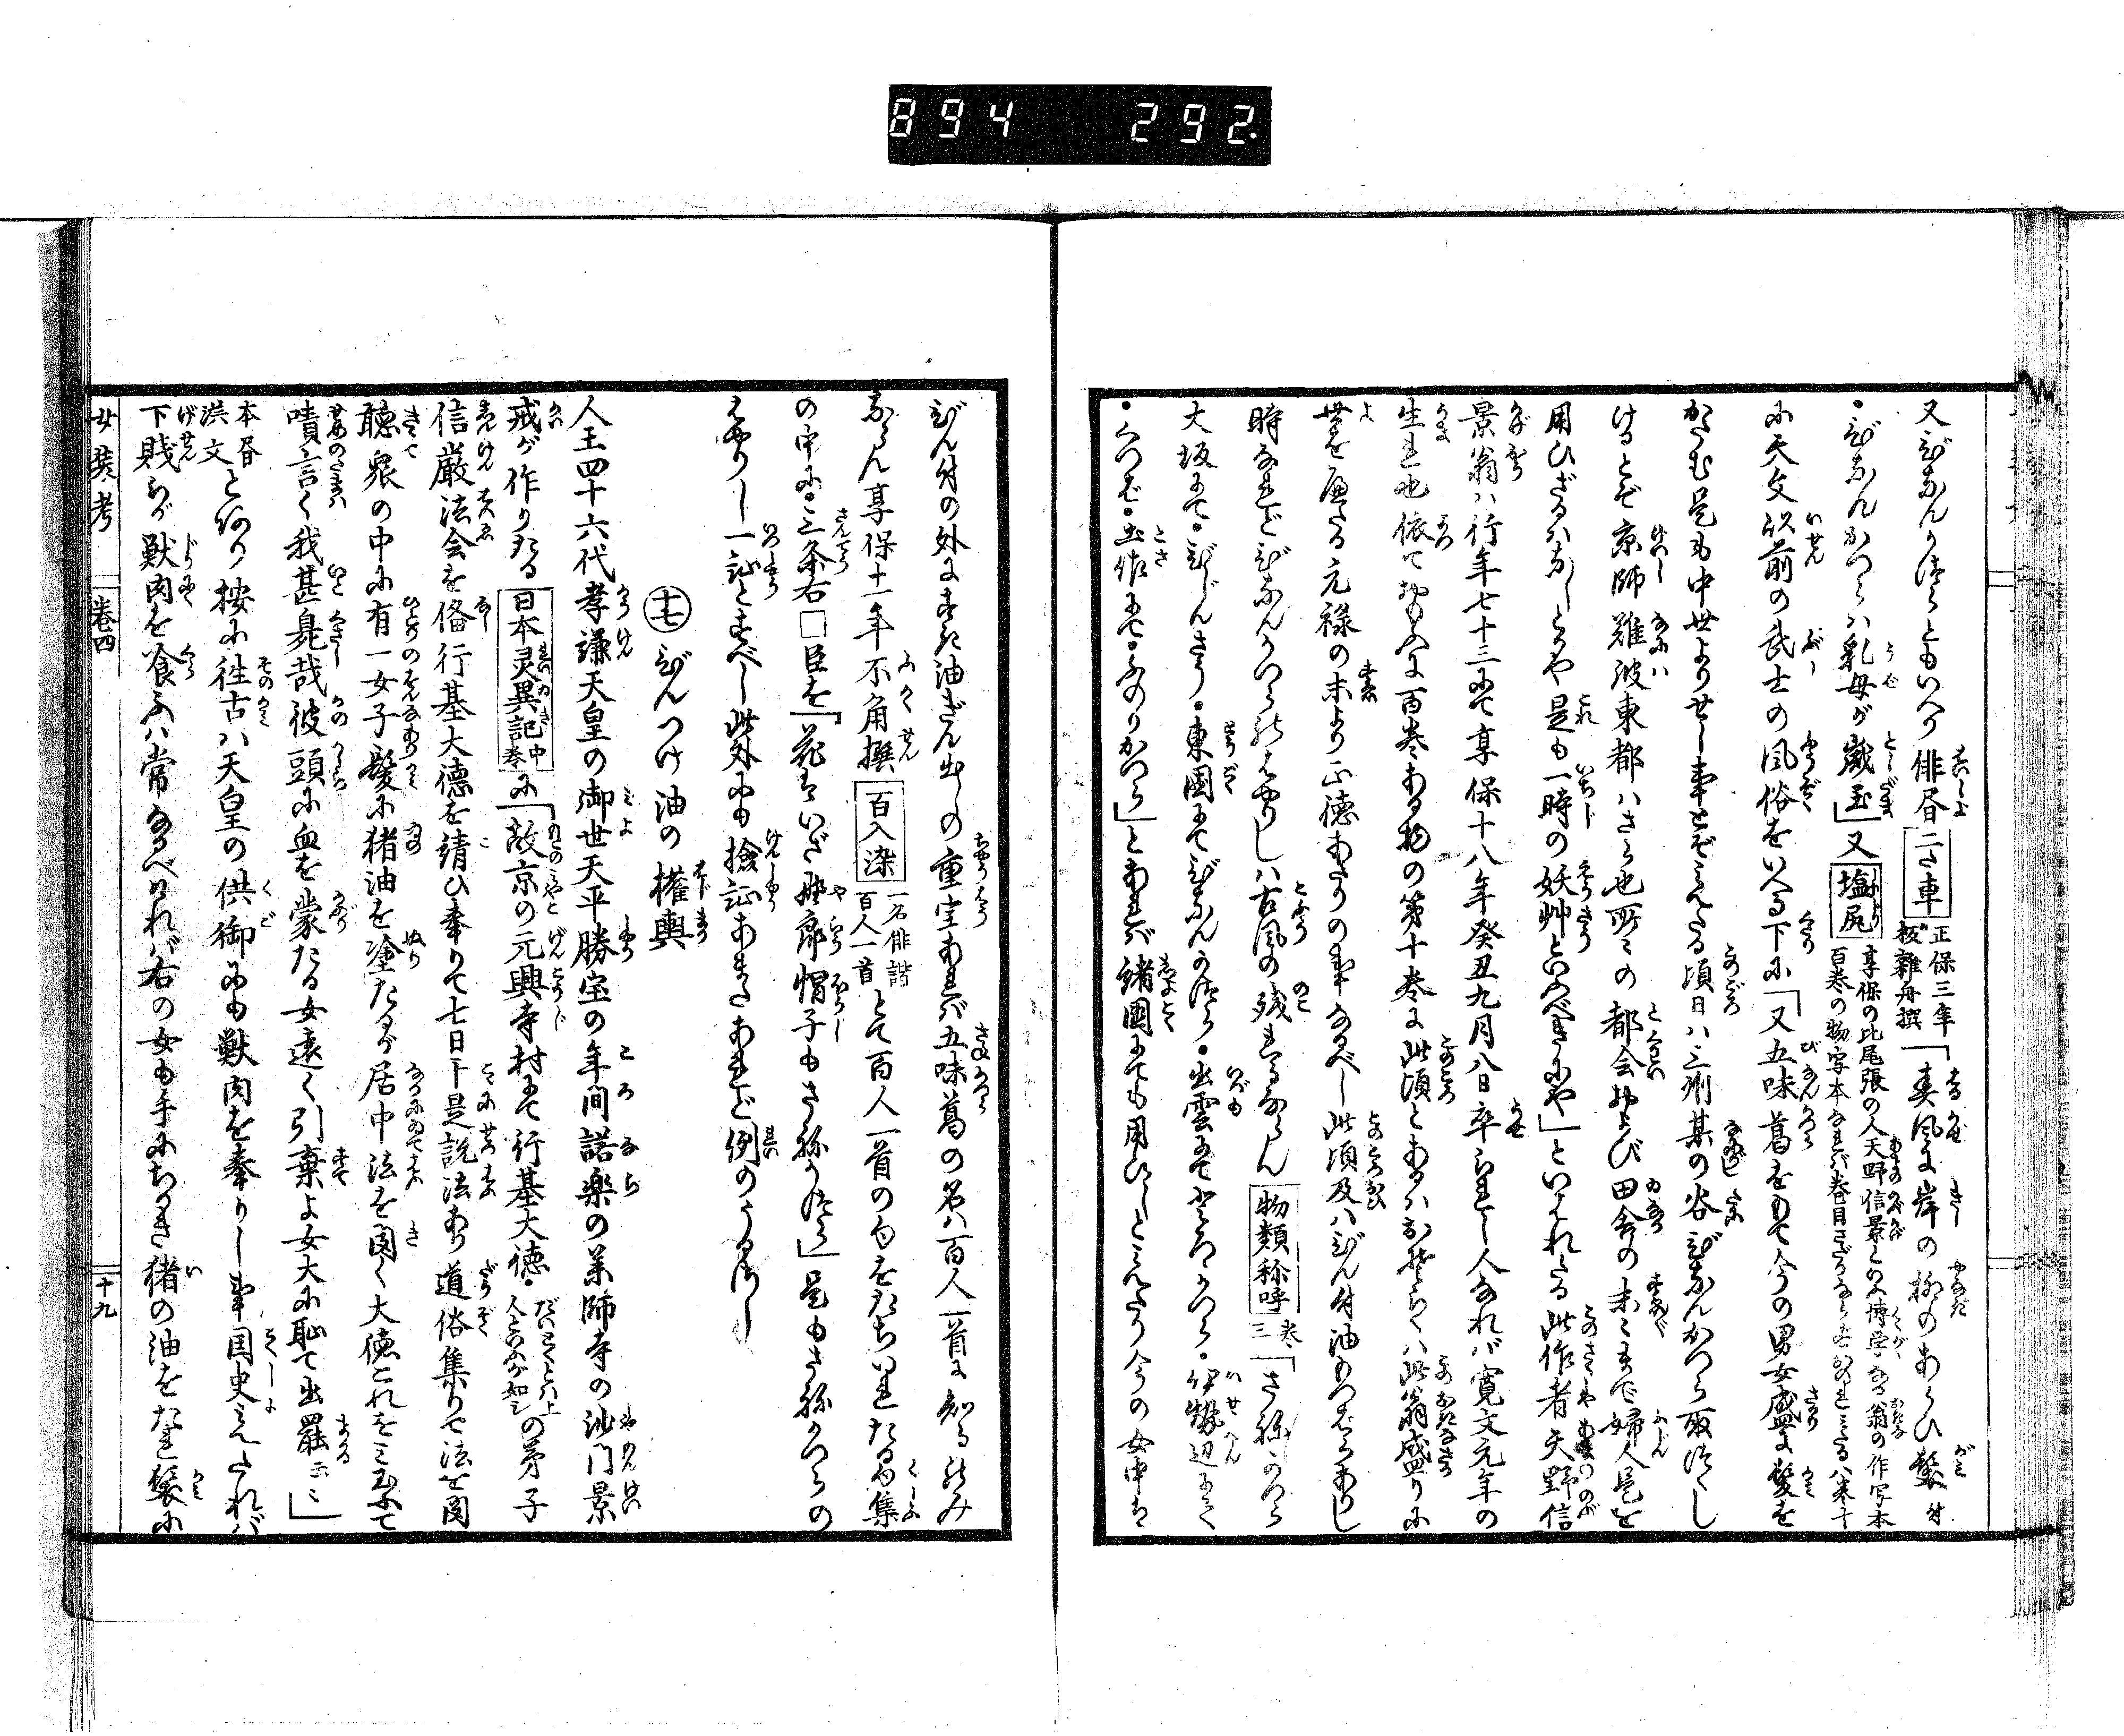 894 292.
又びなんかつらともいへり俳書二た車正保三年板雑舟撰「春風に岸の柳のあらひ髪付
・びなんかつらハ乳母が歳玉」又塩尻享保の比尾張の人天野信景といふ博学なる翁の作写本百巻の物写本なれば巻目さだかならず
に天文以前の武士の風俗をいへる下に「又五味葛をもて今の男女盛に髪を
かたむ是も中世よりせし事とぞみえたる頃日ハ三州某の谷びなんかつら取つくし
けるとぞ京師難波東都ハさら也所々の都会および田舎の末々まで婦人是を
用ひざるハなしとかや是も一時の妖艸といふべきにや」といはれたる此作者天野信
景翁ハ行年七十三にて享保十八年癸丑九月八日卒られし人なれバ寛文元年の
生れ也依ておもふに百巻ある物の第十巻に此頃とあるハおそらくハ此翁盛りに
世を歴たる元禄の末より正徳あたりの事なるべし此頃及ハびん付油もつぱらありし
時なれどびなんかつらのはやりしハ古風の残れるならん物類称呼巻三「さねかつら
大坂にて・びじんさう・東国にてびなんかつら・出雲にてとろろかつら・伊勢辺にて
・くつば・土佐にて・ふのりかつら」とあれバ諸国にても用ひしとみえたり今の女中は
びん付の外にすき油ぎん出しの重宝あれバ五味葛の名ハ百人一首に知るのみ
ならん享保十一年不角撰百入染一名俳諧百人一首とて百人一首の句をたちいれたる句集
の中に・三条右□臣を「花はいざ野郎帽子もさねかつら」是もさねかつらの
はやりし一証とすべし此外にも捨証あまたあれど例のうるさし
㊉七 びんつけ油の権輿
人王四十六代孝謙天皇の御世天平勝宝の年間諾楽の薬師寺の沙門景
戒が作りたる日本灵異記中巻に「故京の元興寺村にて行基大徳・だいとくとハ上人といふが如しの弟子
信厳法会を俻行基大徳を請ひ奉りて七日卜是説法あり道俗集りて法を聞
聴衆の中に有一女子髪に猪油を塗たるが居中法を聞く大徳これをみ玉ふて
嘖言く我甚臭哉彼頭に血を蒙たる女遠く引棄よ女大に恥て出罷云々」
本書漢文とあり按に往古ハ天皇の供御にも獣肉を奉りし事国史みえたれバ
下賤らが獣肉を食ふハ常なるべければ右の女も手にちかき猪の油をたれ髪に
女装考 巻四 十九